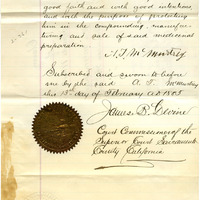 good faith and with good intentions
and with the purpose of protecting
him in the compounding, manufac-
turing and sale of said medicinal
preparation
Subscribed and sworn to before
me by the said A. T.
this 13th day of February A.D. 1883
James B. Devine
Court Commissioner of the
Superior Court Sacramento
County California